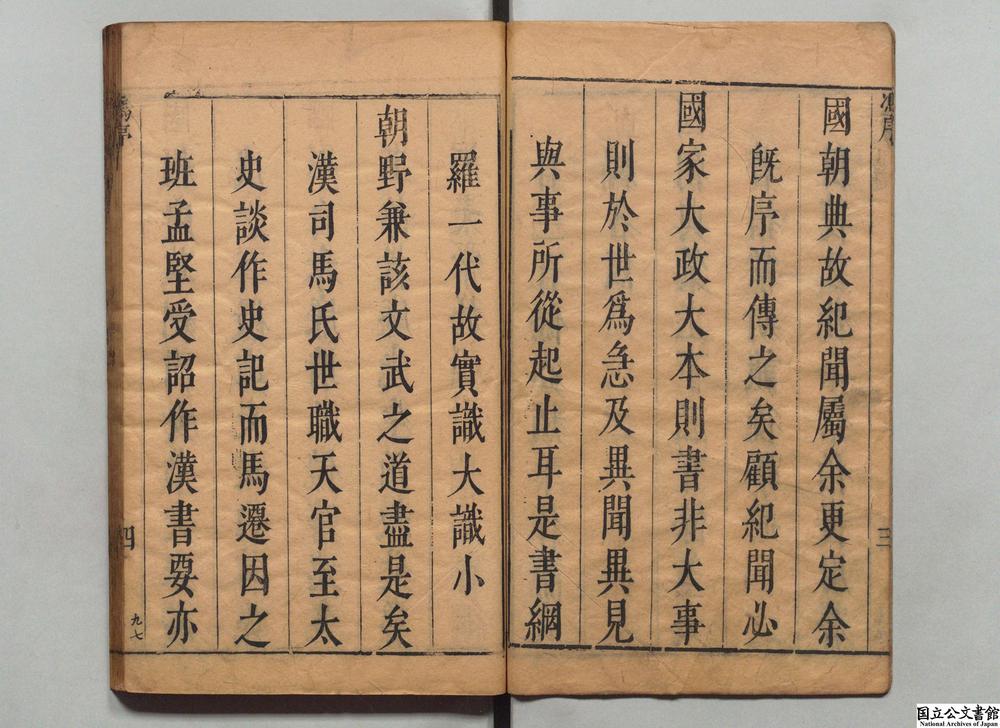 馮序
國朝典故紀聞屬余更定余
旣序而傳之矣顧紀聞必
國家大政大本則書非大事
則於世爲急及異聞異見
與事所從起止耳是書網
三
羅一代故實識大識小
朝野兼該文武之道盡是矣
漢司馬氏世職天官至太
史談作史記而馬遷因之
班孟堅受詔作漢書要亦
馮序
四
九七
国立公文書館
National Archives of Japan